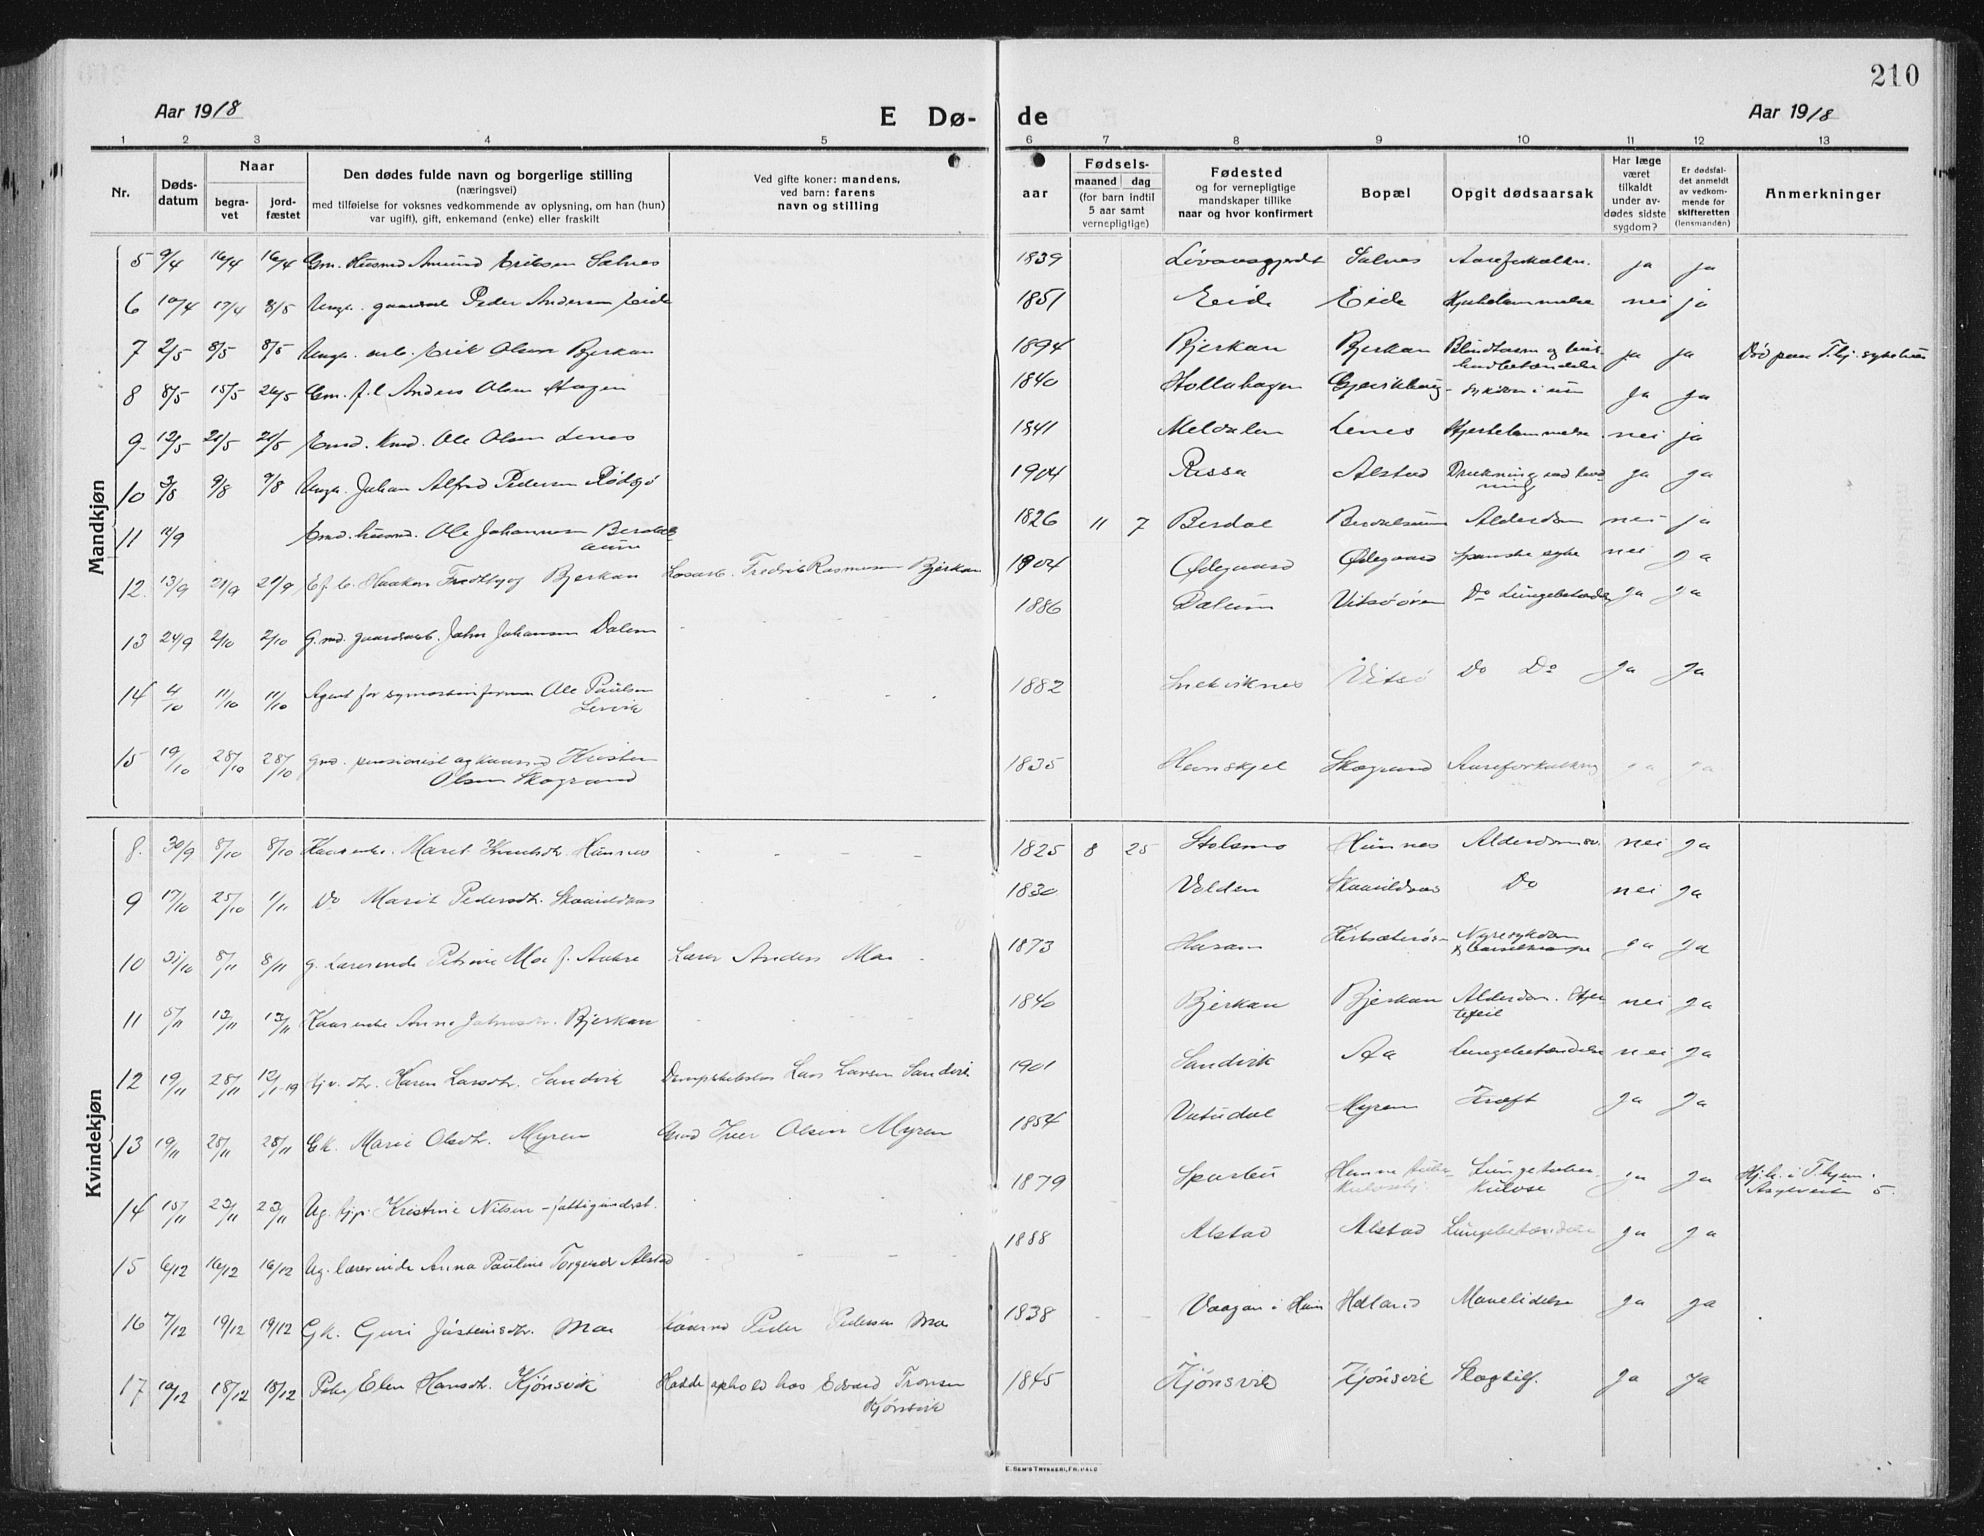 210
Aar 1918
E Dø-
de
Aar 1918
1 2 3 4 5 6 7 8 9 10 11 12 13
Nr.
Døds-
datum
Naar
begra-
vet
jord-
fæstet
Den dødes fulde navn og borgerlige stilling
(næringsvei)
med tilføielse for voksnes vedkommende av oplysning, om han (hun)
var ugift), gift, enkemand (enke) eller fraskilt
Ved gifte koner: mandens,
ved barn: farens
navn og stilling
aar
Fødsels-
maaned dag
(for barn indtil
5 aar samt
vernepligtige)
Fødested
og for vernepligtige
mandskaper tillike
naar og hvor konfirmert
Bopæl
Opgit dødsaarsak
Har læge
været
tilkaldt
under av-
dødes sidste
sygdom?
Er dødsfal-
det anmeldt
av vedkom-
mende for
skifteretten
(lensmanden)
Anmerkninger
Mandkjøn
5 9/4 16/4 16/4 Gm. Husmd Amund Eriksen Salnes 1839 Salnes Aareforkalkn. ja ja
6 10/4 17/4 8/5 Ungk. Peder Andersen Eide 1851 Eide Eide Hjertelammelse nei ja
7 2/5 8/5 8/5 Ungk. arb. Erik Olsen Bjerkan 1894 Bjerkan Bjerkan Blindtarm og ja ja Død paa Thj. sykehus
8 8/5 15/5 26/5 Gm. f.l Anders Olsen Hagen 1840 Hollahagen ja ja
9 12/5 21/5 21/5 Emd. Kmd. Ole Olsen Lenes 1841 Meldalen Lenes Hjertelammelse nei ja
10 3/8 9/8 9/8 Ungk. Johan Alfred Pedersen Rødsjø 1904 Rissa Alstad Drukning ved ja ja
11 11/9 Emd. husmd. Ole Johannesen Berdals
aune 1826 11 7 Berdal Berdalsaune Alderdom nei ja
12. 13/9 21/9 21/9 E.f.b. Haakon Fredthjof Bjerkan Losarb. Fredrik Rasmussen Bjerkan 1904 Ødegaard Ødegaard Spanske syke nei ja
13 24/9 2/10 2/10 G.md. gaardarb. John Johansen Dalum 1886 Dalum Vitsøøren Do Lungebetænd. ja ja
14 4/10 11/10 11/10 Agent for symaskinforren Ole Paulsen
Lervik 1882 Snekviknes Vitsø Do Do ja ja
15 19/10 28/10 28/10 Gmd. pensionist og kaarmd Kristen
Olsen Skogrand 1835 Hanskjel Skogrand Aareforkalkng ja ja
Kvindekjøn
8. 30/9 8/10 8/10 Kaarenke. Marit Knutsdtr. Hunnes 1825 8 25 Stolsmo Hunnes Alderdomssv. nei ja
9 17/10 25/10 1/11 Do Marit Pedersdtr. 1830 Velden Do nei ja
10 31/10 8/11 8/11 g. Lærerinde Petrine Moe f. Aakre Lærer Anders Moe 1873 Haram Kirksæterøren Nyresykdom ja ja
11 5/11 13/11 13/11 Kaarenke Anne Johnsdtr. Bjerkan 1840 Bjerkan Bjerkan Alderdom. Hjer
tefeil nei ja
12 19/11 28/11 12/1-19 Hjv. dtr. Karen Larsdtr. Sandvik Lars Larsen Sandvik 1901 Sandvik Aa Lungebetændelse nei ja
13 19/11 28/11 28/11 Gk. Marie Olsdtr. Myren Gmd Iver Olsen Myren 1854 Vutudal Myren Kræft ja ja
14 15/11 23/11 23/11 Ug. hjp. Kristine Nilsen - fattigunderst. 1879 Sparbu Hemne tuber-
kulosehj. Lungetuber-
kulose ja ja Hjh. i Thjem.
Asylveita 5.
15 6/12 16/12 16/12 Ug. lærerinde Anna Pauline Torgersdr Alstad 1888 Alstad Alstad Lungebetændelse ja ja
16 7/12 19/12 19/12 Gk. Guri Jústeinsdtr. Moe Kaarmd Peder Pedersen Moe 1838 Vaagan i Heim Holland Mavelidelse ja ja
17 10/12 18/12 18/12 Elen Hansdtr. Kjønsvik Hadde ophold hos Edvard Tronsen
Kjønsvik 1845 Kjønsvik Kjønsvik Slagtilf. ja ja
E. SEM'S TRYKKERI, FR.HALD